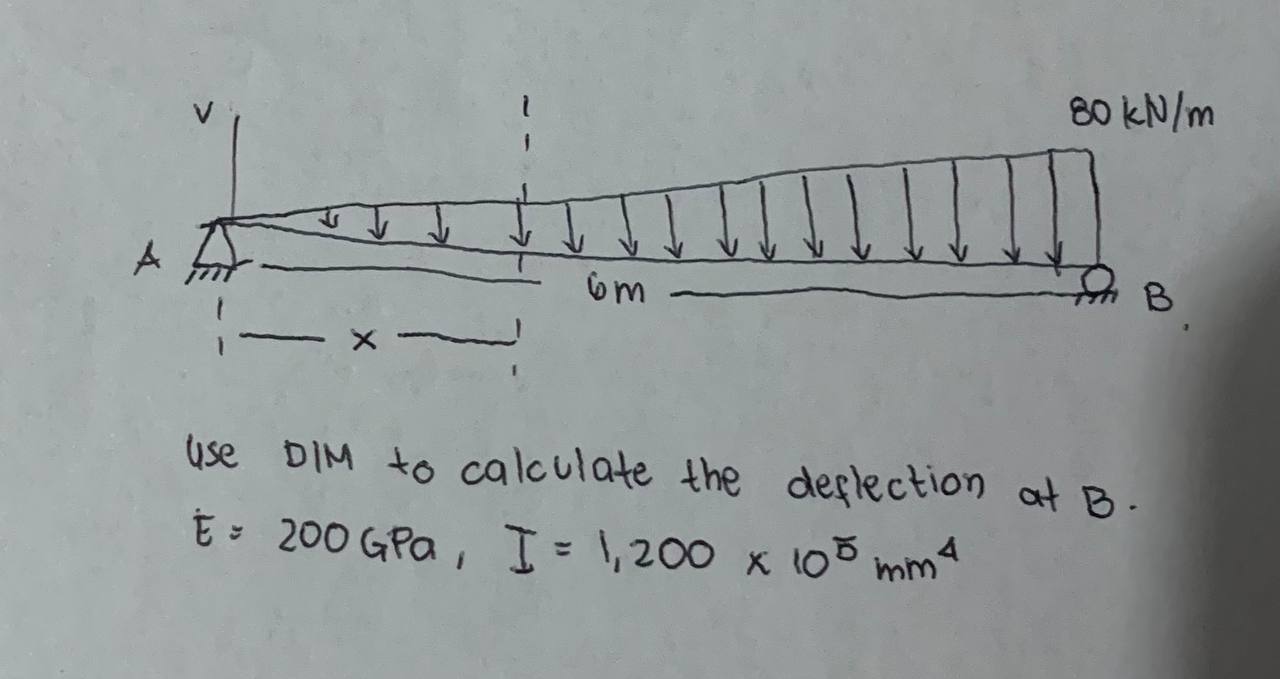 v
80 kN/m
A
6m
B.
x
Use DIM to calculate the deflection at B.
E = 200 GPa, I = 1,200 x 10⁵ mm⁴